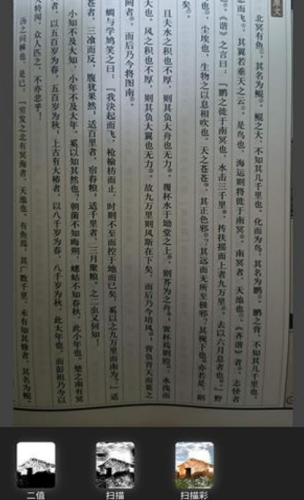 北冥有鱼，其名为鲲。鲲之大，不知其几千里也。化而为鸟，其名为鹏。鹏之背，不知其几千里也，
怒而飞，其翼若垂天之云。是鸟也，海运则将徙于南冥。南冥者，天池也。《齐谐》者，志怪者
也。《谐》之言曰：“鹏之徙于南冥也，水击三千里，抟扶摇而上者九万里，去以六月息者也。”野
马也，尘埃也，生物之以息相吹也。天之苍苍，其正色邪？其远而无所至极邪？其视下也，亦若是则
已矣。
且夫水之积也不厚，则其负大舟也无力。覆杯水于坳堂之上，则芥为之舟。置杯焉则胶，水浅而
舟大也。风之积也不厚，则其负大翼也无力。故九万里则风斯在下矣，而后乃今培风；背负青天而莫之
夭阏者，而后乃今将图南。
蜩与学鸠笑之曰：“我决起而飞，枪榆枋而止，时则不至而控于地而已矣，奚以之九万里而南为？”适
莽苍者，三飡而反，腹犹果然；适百里者，宿舂粮；适千里者，三月聚粮。之二虫又何知！
小知不及大知，小年不及大年。奚以知其然也？朝菌不知晦朔，蟪蛄不知春秋，此小年也。楚之南有冥
灵者，以五百岁为春，五百岁为秋；上古有大椿者，以八千岁为春，八千岁为秋，此大年也。而彭祖乃今以
久特闻，众人匹之，不亦悲乎！
汤之问棘也是已：“穷发之北有冥海者，天池也。有鱼焉，其广数千里，未有知其修者，其名为鲲。
二值
扫描
扫描彩